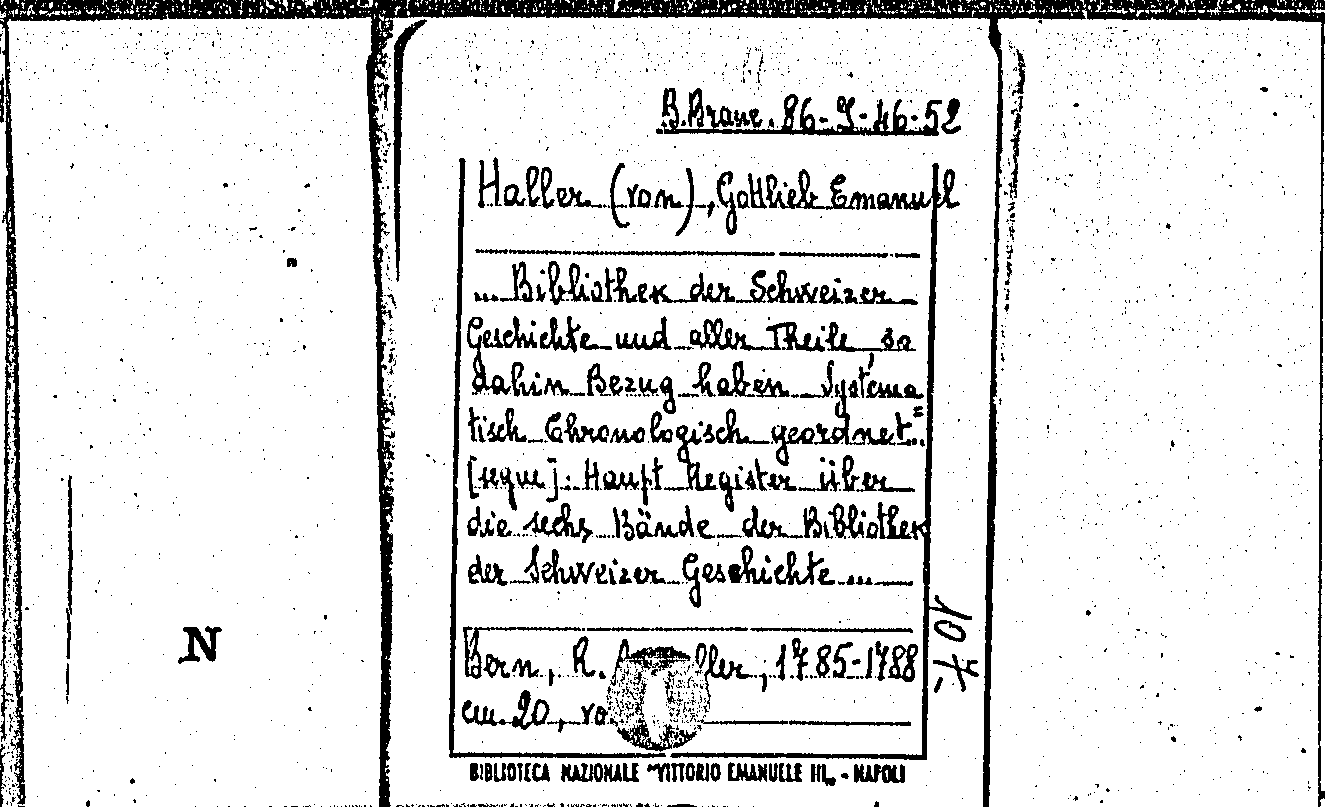 B.Branc. 86-I-46-52
Haller (von), Gottlieb Emanuel
... Bibliothek der Schweizer
Geschichte und aller Theile, so
dahin Bezug haben Systema
tisch Chronologisch geordnet...
[segue]: Haupt Register über
die sechs Bände der Bibliothek
der Schweizer Geschichte ...
Bern, R. ller, 1785-1788
cm. 20, vo
BIBLIOTECA NAZIONALE "VITTORIO EMANUELE III„ - NAPOLI
N